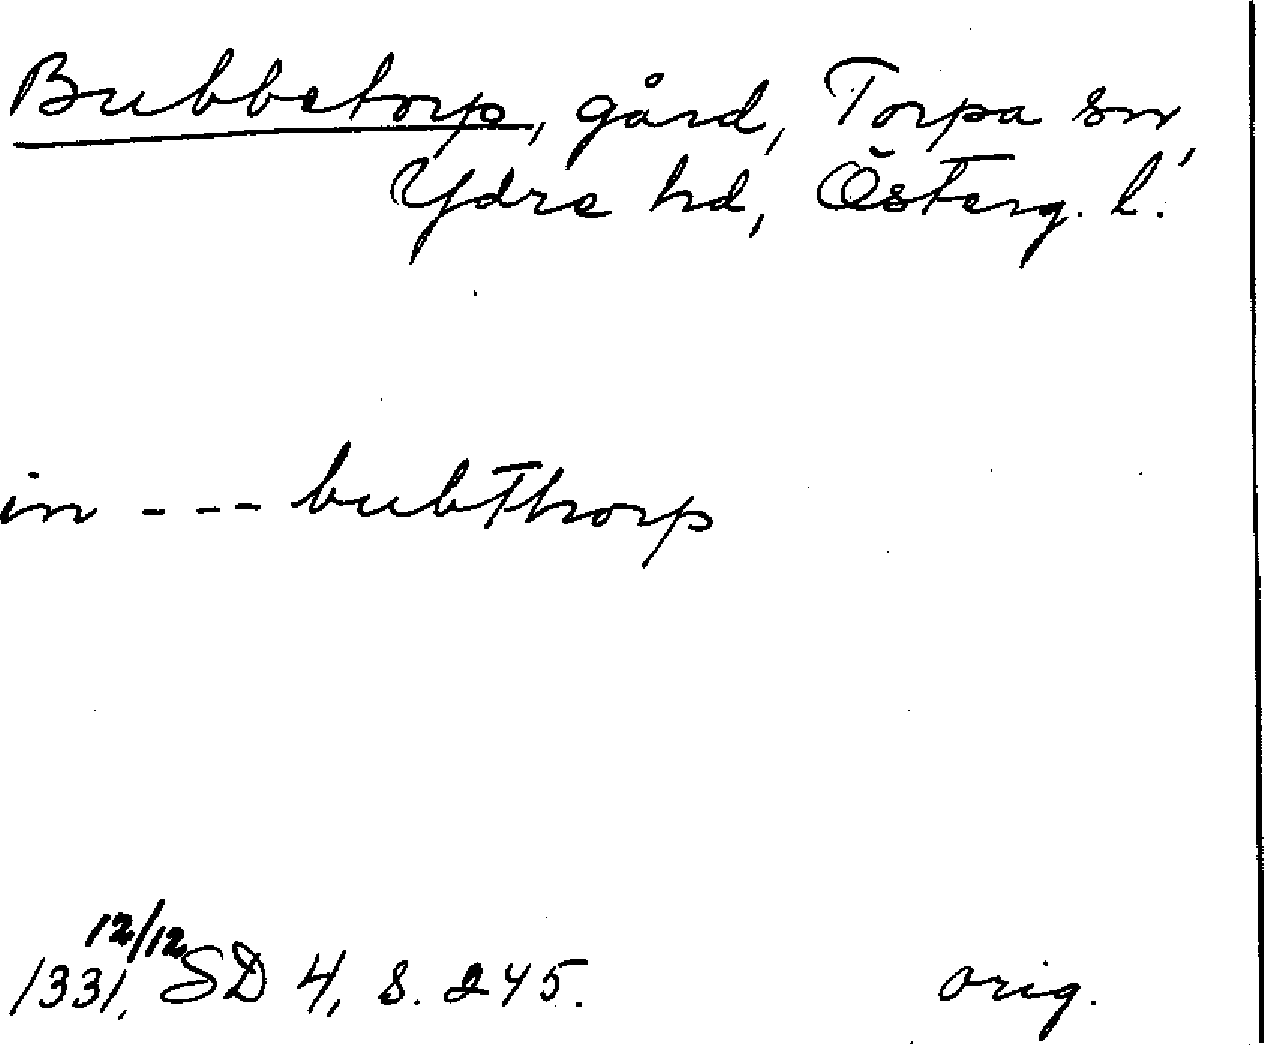 Bubbetorp, gård, Torpa sn
Ydre hd, Österg. l.
in --- bubthorp
1331, 12/12 SD 4, s. 245. orig.